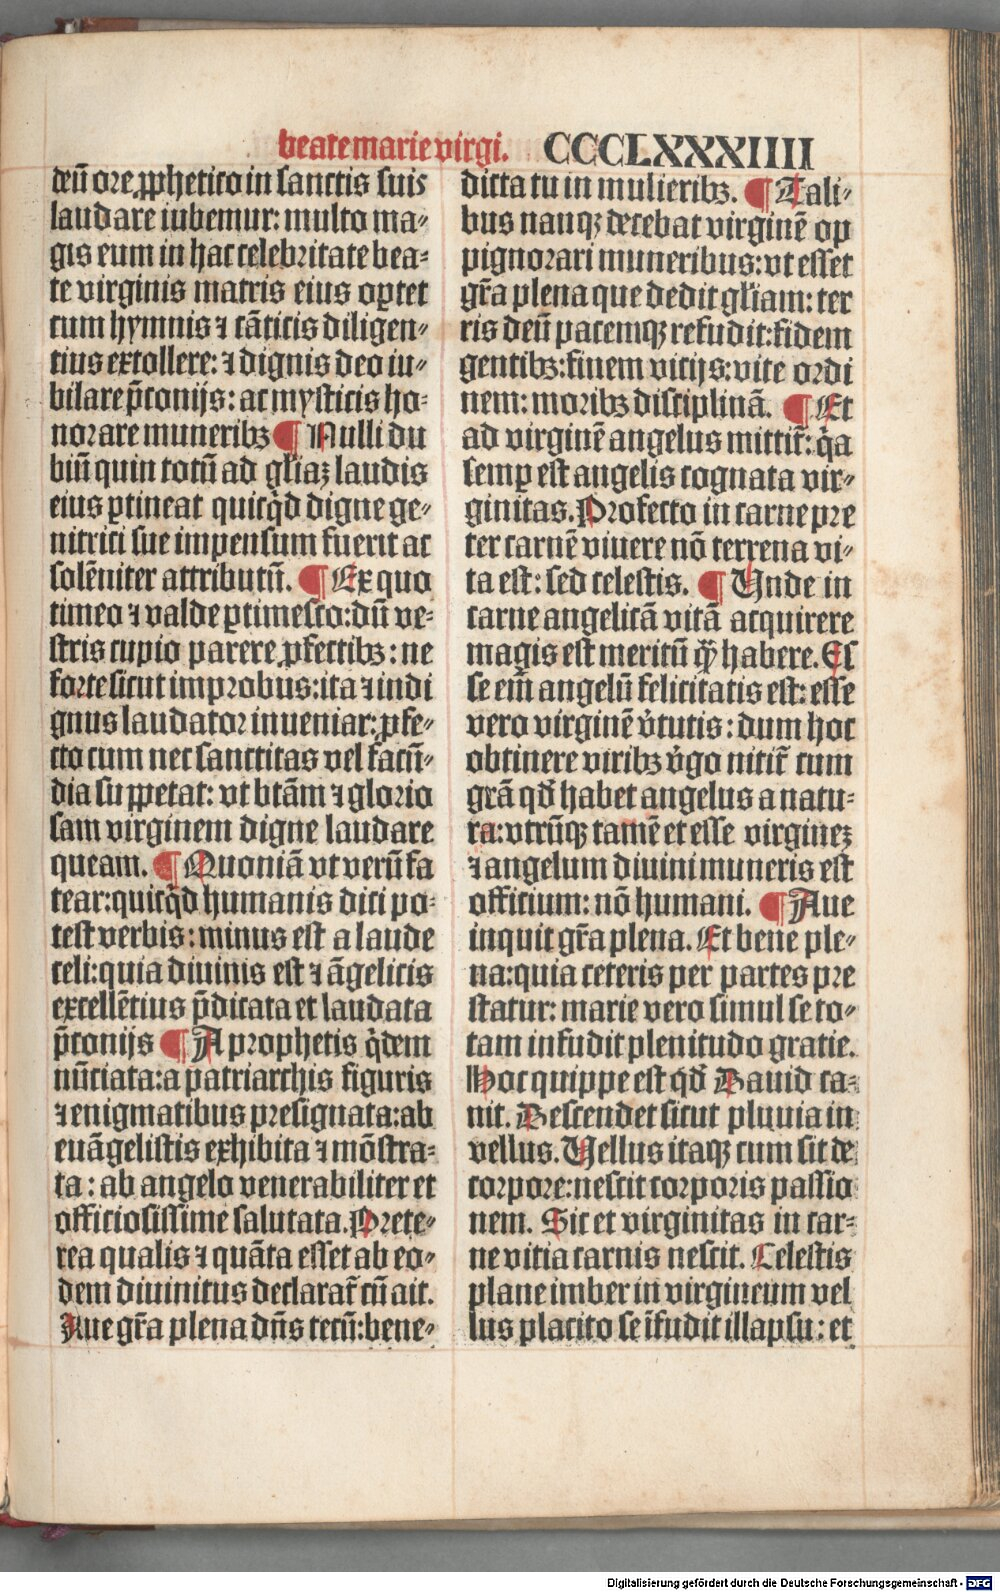 beate marie virgi. CCCCLXXXIIII
deū ore ꝓphetico in sanctis suis
laudare iubemur: multo ma⸗
gis eum in hac celebritate bea⸗
te virginis matris eius oꝑtet
cum hymnis ⁊ cāticis diligen⸗
tius extollere: ⁊ dignis deo iu⸗
bilare p̄conijs: ac mysticis ho⸗
norare muneribꝫ ¶ Nulli du
biū quin totū ad gl̄iaꝫ laudis
eius ꝑtineat quicq̇d digne ge⸗
nitrici sue impensum fuerit ac
solēniter attributū. ¶ Ex quo
timeo ⁊ valde ꝑtimesco: dū ve⸗
stris cupio parere ꝓfectibꝫ: ne
forte sicut improbus: ita ⁊ indi
gnus laudator inueniar: ꝓfe⸗
cto cum nec sanctitas vel facū⸗
dia suppetat: vt btām ⁊ glorio
sam virginem digne laudare
queam. ¶ Quoniā vt verū fa
tear: quicq̇d humanis dici po⸗
test verbis: minus est a laude
celi: quia diuinis est ⁊ āgelicis
excellētius p̄dicata et laudata
p̄conijs ¶ A prophetis q̇dem
nūciata: a patriarchis figuris
⁊ enigmatibus presignata: ab
euāgelistis exhibita ⁊ mōstra⸗
ta: ab angelo venerabiliter et
officiosissime salutata. Prete⸗
rea qualis ⁊ quāta esset ab eo⸗
dem diuinitus declarat̄ cū ait.
Aue gr̄a plena dn̄s tecū: bene⸗
dicta tu in mulieribꝫ. ¶ Tali⸗
bus nanqꝫ decebat virginē op
pignorari muneribus: vt esset
gr̄a plena que dedit gl̄iam: ter
ris deū pacemqꝫ refudit: fidem
gentibꝫ: finem vicijs: vite ordi
nem: moribꝫ disciplinā. ¶ Et
ad virginē angelus mittit̄: q̇a
semꝑ est angelis cognata vir⸗
ginitas. Profecto in carne pre
ter carnē viuere nō terrena vi⸗
ta est: sed celestis. ¶ Unde in
carne angelicā vitā acquirere
magis est meritū q̄ꝫ habere. Es
se em̄ angelū felicitatis est: esse
vero virginē v̇tutis: dum hoc
obtinere viribꝫ v̇go nitit̄ cum
grā qd̄ habet angelus a natu⸗
ra: vtrūqꝫ tamē et esse virgineꝫ
⁊ angelum diuini muneris est
officium: nō humani. ¶ Aue
inquit gr̄a plena. Et bene ple⸗
na: quia ceteris per partes pre
statur: marie vero simul se to⸗
tam infudit plenitudo gratie.
Hoc quippe est qd̄ Dauid ca⸗
nit. Descendet sicut pluuia in
vellus. Vellus itaqꝫ cum sit de
corpore: nescit corporis passio
nem. Sic et virginitas in car⸗
ne vitia carnis nescit. Celestis
plane imber in virgineum vel
lus placito se īfudit illapsu: et
Digitalisierung gefördert durch die Deutsche Forschungsgemeinschaft - DFG